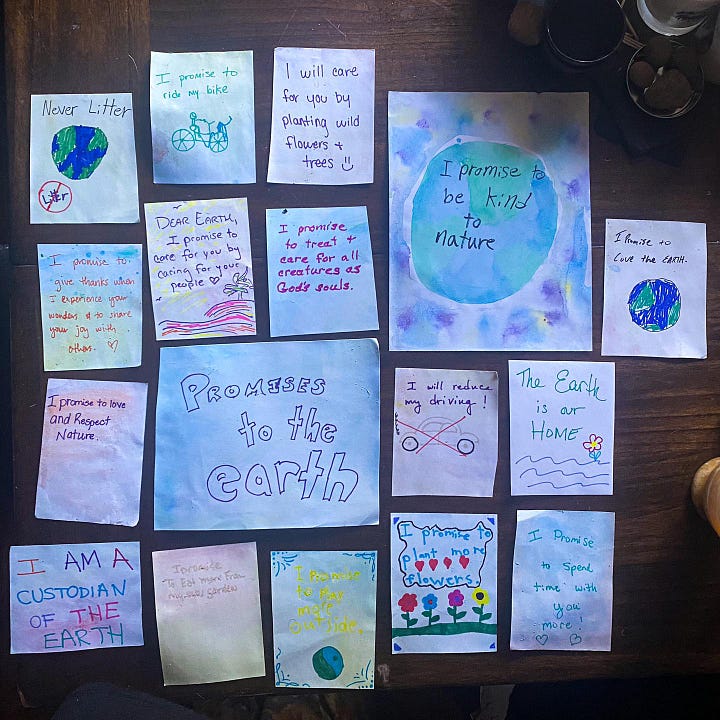 Never Litter
Litter
I promise to
ride my bike
I will care
for you by
planting wild
flowers +
trees
I promise to
be kind
to
nature
I promise to
give thanks when
I experience your
wonders & to share
your joy with
others.
DEAR EARTH,
I promise to
care for you by
caring for your
people
I promise
to treat +
care for all
creatures as
God's souls.
I Promise to
Love the EARTH.
I promise to love
and Respect
Nature.
PROMISES
to the
earth
I will reduce
my driving!
The Earth
is our
HOME
I AM A
CUSTODIAN
OF THE
EARTH
I promise
To Eat more From
my own garden
I promise
to play
more
outside.
I promise to
plant more
flowers.
I Promise
to spend
time with
you
more!